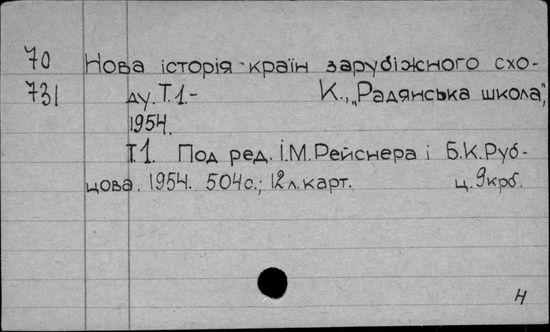 70 Нова історія країн зарубіжного схо-
731 ду. Т.1.- К., „Радянська школа",
1954.
Т.1. Под ред. І.М.Рейснера і Б.К.Руб-
цова. 1954. 504с.; 12л.карт. ц.9крб.
Н